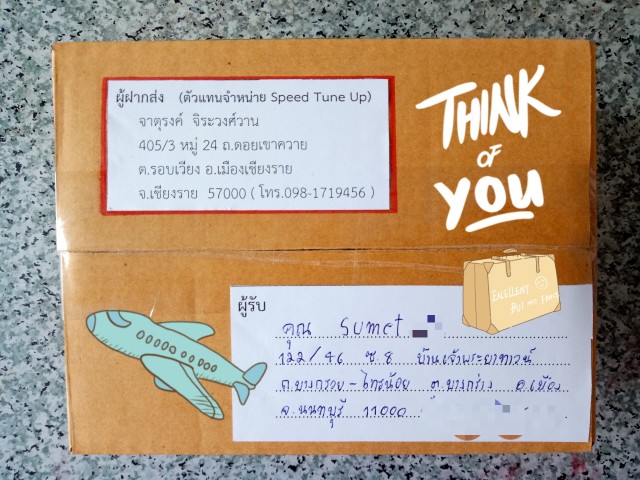 ผู้ฝากส่ง (ตัวแทนจำหน่าย Speed Tune Up)
จาตุรงค์ จิระวงศ์วาน
405/3 หมู่ 24 ถ.ดอยเขาควาย
ต.รอบเวียง อ.เมืองเชียงราย
จ.เชียงราย 57000 ( โทร.098-1719456 )
THINK
OF
YOU
EXCELLENT
BUT NOT
ผู้รับ
คุณ Sumet
122/46 ซ.8 บ้านเจ้าพระยาทาวน์
ถ.บางกรวย-ไทรน้อย ต.บางกร่าง อ.เมือง
จ.นนทบุรี 11000